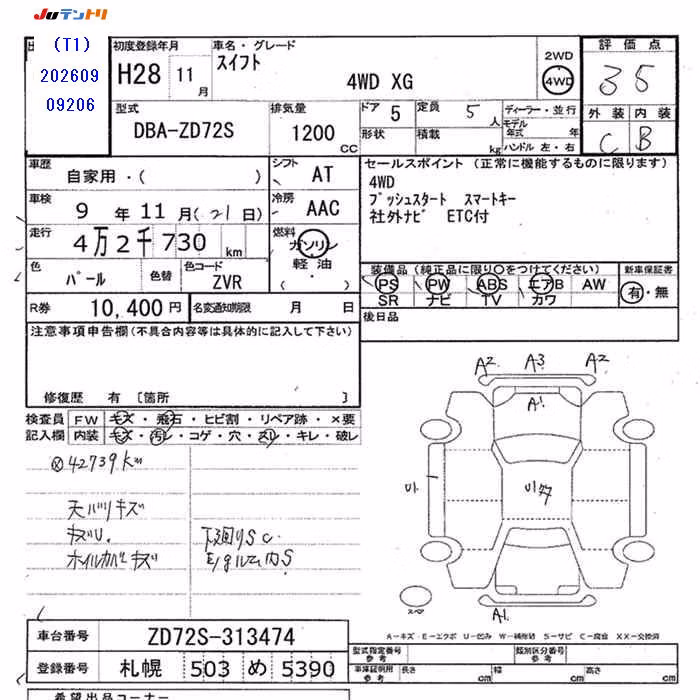 JUテントリ
(T1)
202609
09206
初度登録年月
H28 11月
車名・グレード
スイフト
4WD XG
2WD
4WD
評価点
3 5
外装 内装
C B
型式
DBA-ZD72S
排気量
1200 CC
ドア 5
定員 5人
形状
積載 kg
ディーラー・並行
モデル年式 年
ハンドル 左・右
車歴
自家用・( )
シフト AT
車検
9年11月(21日)
冷房 AAC
走行
4万2千730km
燃料
ガソリン
軽油
( ・ )
色 パール
色替
色コード ZVR
R券 10,400円
名変通知期限 月 日
セールスポイント (正常に機能するものに限ります)
4WD
プッシュスタート スマートキー
社外ナビ ETC付
装備品 (純正品に限り○をつけてください)
PS PW ABS エアB AW
SR ナビ TV カワ
新車保証書
有・無
後日品
注意事項申告欄(不具合内容等は具体的に記入して下さい)
修復歴 有 [箇所 ]
検査員記入欄
FW キズ・飛石・ヒビ割・リペア跡・×要
内装 キズ・汚レ・コゲ・穴・スレ・キレ・破レ
42739km
天バリキズ
キズU.
ホイルカバキズ
下廻りSC
E/gルーム内S
A2 A3 A2
A1
U1
U1
A1
スペア
A-キズ E-エクボ U-凹み W-補修跡 S-サビ C-腐食 XX-交換済
車台番号 ZD72S-313474
登録番号 札幌 503 め 5390
型式指定番号 参考
類別区分番号 参考
車庫証明用 参考
長さ cm 幅 cm 高さ cm
希望出品コーナー